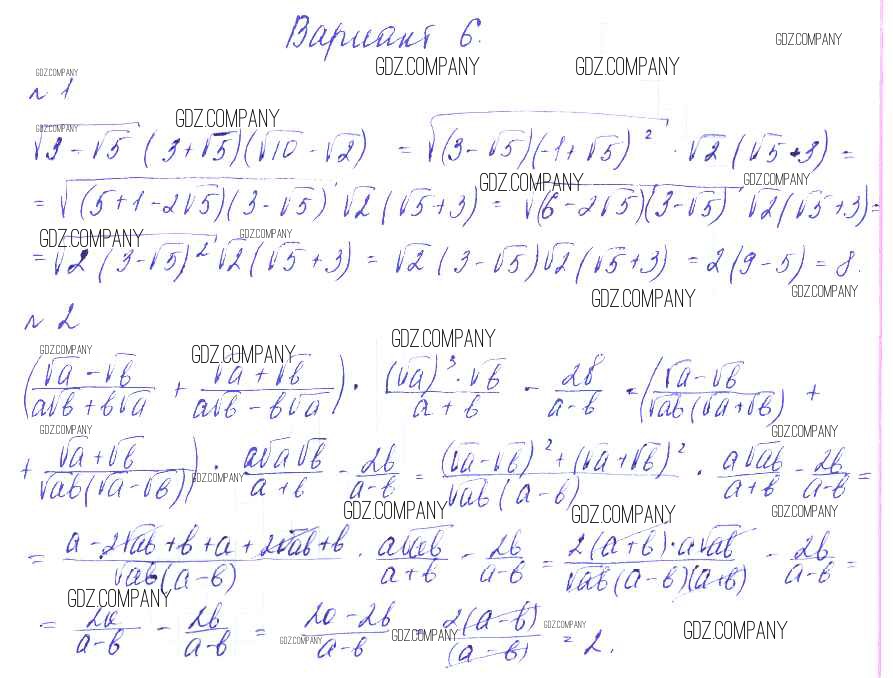 Вариант 6.
GDZ.COMPANY
GDZ.COMPANY GDZ.COMPANY
GDZ.COMPANY
N 1
GDZ.COMPANY
GDZ.COMPANY
√(3 - √5) (3 + √5)(√10 - √2) = √((3 - √5)(-1 + √5)²) · √2 (√5 + 3) =
GDZ.COMPANY GDZ.COMPANY
= √((5 + 1 - 2√5)(3 - √5)) √2 (√5 + 3) = √((6 - 2√5)(3 - √5)) √2 (√5 + 3) =
GDZ.COMPANY GDZ.COMPANY
= √(2 (3 - √5)²) √2 (√5 + 3) = √2 (3 - √5) √2 (√5 + 3) = 2 (9 - 5) = 8.
GDZ.COMPANY GDZ.COMPANY
N 2
GDZ.COMPANY GDZ.COMPANY GDZ.COMPANY
((√a - √b)/(a√b + b√a) + (√a + √b)/(a√b - b√a)) · ((√a)³ · √b)/(a + b) - 2b/(a - b) = ((√a - √b)/(√ab (√a + √b)) +
GDZ.COMPANY GDZ.COMPANY
+ (√a + √b)/(√ab (√a - √b))) · (a√a√b)/(a + b) - 2b/(a - b) = ((√a - √b)² + (√a + √b)²)/(√ab (a - b)) · (a√ab)/(a + b) - 2b/(a - b) =
GDZ.COMPANY
GDZ.COMPANY GDZ.COMPANY GDZ.COMPANY
= (a - 2√ab + b + a + 2√ab + b)/(√ab (a - b)) · (a√ab)/(a + b) - 2b/(a - b) = (2(a + b) · a√ab)/(√ab (a - b)(a + b)) - 2b/(a - b) =
GDZ.COMPANY
= 2a/(a - b) - 2b/(a - b) = (2a - 2b)/(a - b) = (2(a - b))/((a - b)) = 2.
GDZ.COMPANY GDZ.COMPANY GDZ.COMPANY GDZ.COMPANY